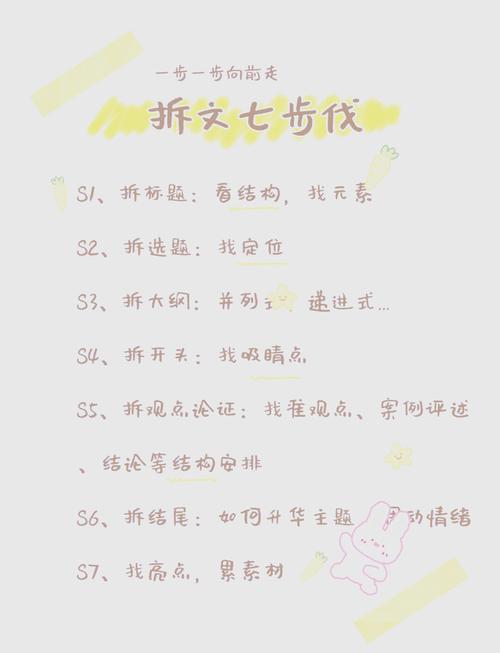 一步一步向前走
拆文七步伐
S1、拆标题：看结构，找元素
S2、拆选题：找定位
S3、拆大纲：并列式，递进式...
S4、拆开头：找吸睛点
S5、拆观点论证：找准观点、案例评述
、结论等结构安排
S6、拆结尾：如何升华主题 动情绪
S7、找亮点，累素材